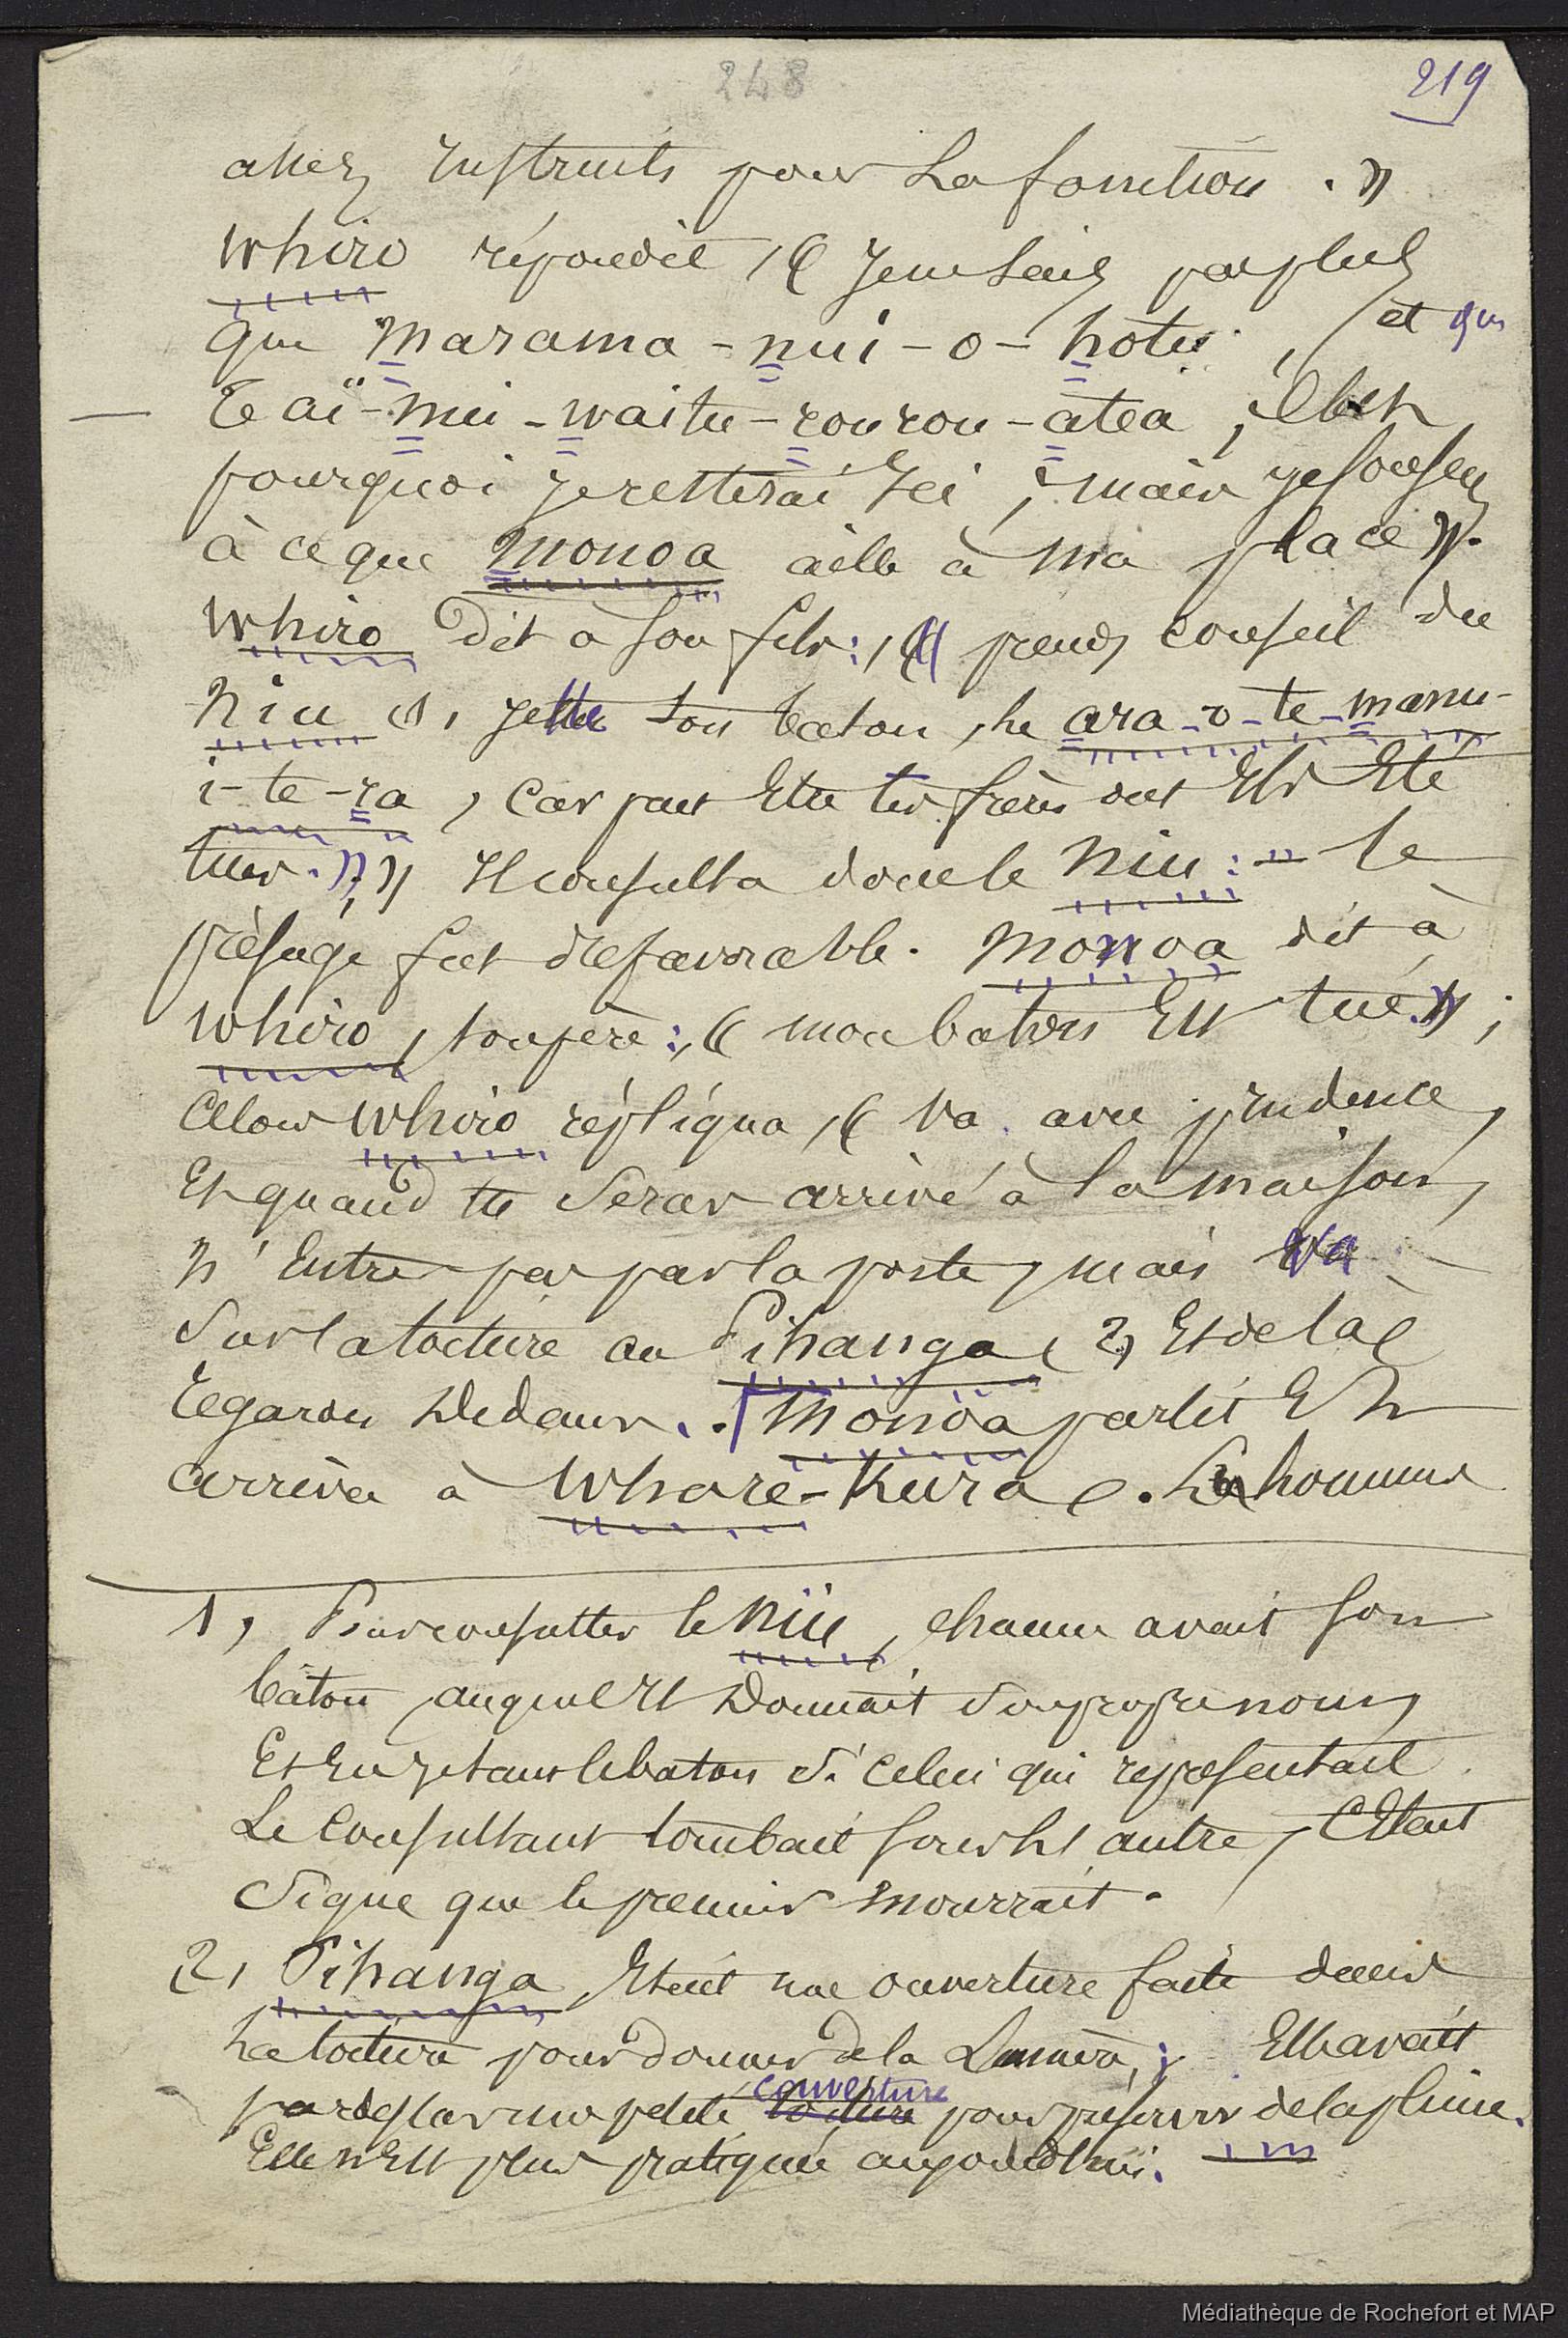 248
219
assez instruits pour la fonction. »
Whiro répondit, « Je ne sais pas plus
que Marama-nui-o-hotu, et que
Taï-mui-waitu-rourou-atea; c'est
pourquoi je resterai ici; mais je
à ce que Monoa aille à ma place ».
Whiro dit à son fils:, « prends conseil du
niu (1, jette ton bâton, le ara-o-te-manu-
i-te-ra, car peut être tes frères ont ils été
tués. » » Il consulta donc le niu: – le
présage fut défavorable. Monoa dit à
Whiro, son père:, « mon bâton est tué »;
alors Whiro répliqua, « Va avec prudence,
et quand tu seras arrivé à la maison,
n'entre pas par la porte, mais va
sur la toiture au Pihanga (2, et de là
regarde dedans. Monoa partit et
arriva à Whare-Kura. Les hommes
1, Pour consulter le niu, chacun avait son
bâton auquel il donnait son propre nom,
et en jetant le bâton si celui qui représentait
le consultant tombait sous un autre, c'était
signe que le premier mourrait.
2, Pihanga était une ouverture faite dans
la toiture pour donner de la lumière; elle avait
par dessus une petite toiture couverture pour préserver de la pluie.
Elle n'est plus pratiquée aujourd'hui.
Médiathèque de Rochefort et MAP